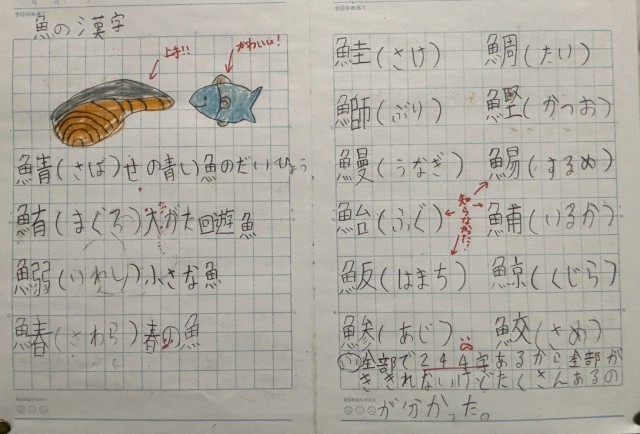 魚の漢字
上手!!
かわいい!
鯖(さば)せの青い魚のだいひょう
鮪(まぐろ)大がた回遊魚
鰯(いわし)小さな魚
鰆(さわら)春の魚
鮭(さけ) 鯛(たい)
鰤(ぶり) 鰹(かつお)
鰻(うなぎ) 鯣(するめ)
知らなかった
鮐(ふぐ) 鯆(いるか)
鰒(はまち) 鯨(くじら)
鯵(あじ) 鮫(さめ)
全部で244字あるから全部が
ききれないけどたくさんあるの
が分かった。